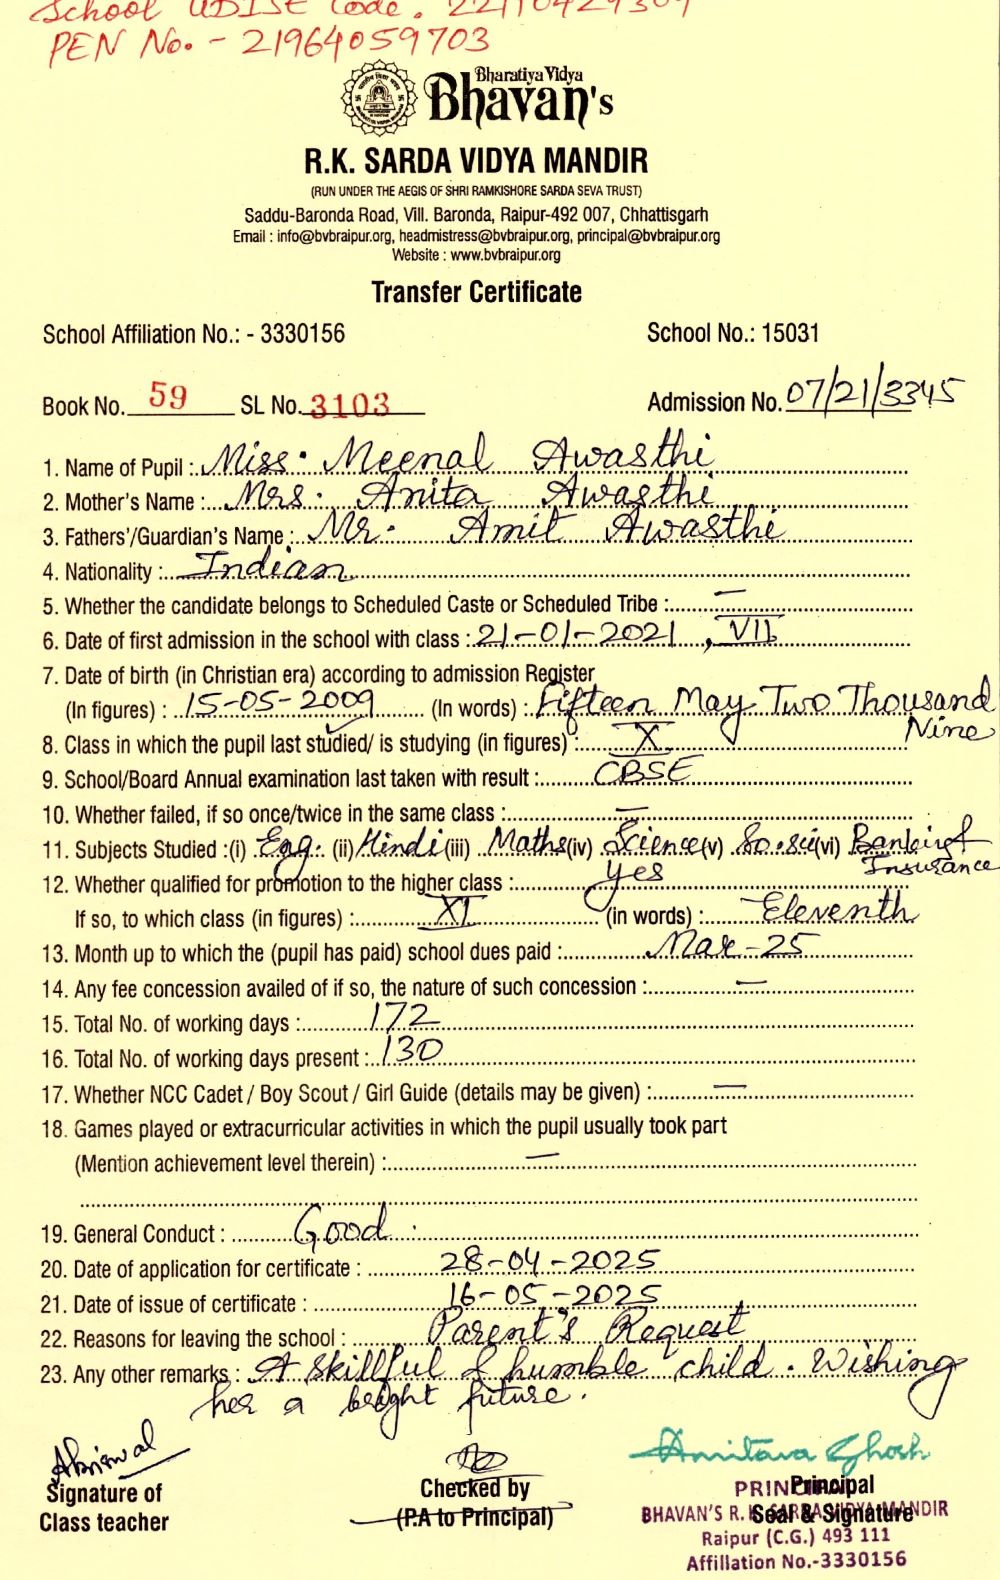 School UDISE Code.
PEN No. - 21964059703
Bharatiya Vidya
Bhavan's
R.K. SARDA VIDYA MANDIR
(RUN UNDER THE AEGIS OF SHRI RAMKISHORE SARDA SEVA TRUST)
Saddu-Baronda Road, Vill. Baronda, Raipur-492 007, Chhattisgarh
Email : info@bvbraipur.org, headmistress@bvbraipur.org, principal@bvbraipur.org
Website : www.bvbraipur.org
Transfer Certificate
School Affiliation No.: - 3330156 School No.: 15031
Book No. 59 SL No. 3103 Admission No. 07/21/3345
1. Name of Pupil : Miss. Meenal Awasthi
2. Mother's Name : Mrs. Anita Awasthi
3. Fathers'/Guardian's Name : Mr. Amit Awasthi
4. Nationality : Indian
5. Whether the candidate belongs to Scheduled Caste or Scheduled Tribe : —
6. Date of first admission in the school with class : 21-01-2021, VII
7. Date of birth (in Christian era) according to admission Register
(In figures) : 15-05-2009 (In words) : Fifteen May Two Thousand
Nine
8. Class in which the pupil last studied/ is studying (in figures) : X
9. School/Board Annual examination last taken with result : CBSE
10. Whether failed, if so once/twice in the same class : —
11. Subjects Studied :(i) Eng. (ii) Hindi (iii) Maths (iv) Science (v) So.sci (vi) Banking &
Insurance
12. Whether qualified for promotion to the higher class : yes
If so, to which class (in figures) : XI (in words) : Eleventh
13. Month up to which the (pupil has paid) school dues paid : Mar-25
14. Any fee concession availed of if so, the nature of such concession : —
15. Total No. of working days : 172
16. Total No. of working days present : 130
17. Whether NCC Cadet / Boy Scout / Girl Guide (details may be given) : —
18. Games played or extracurricular activities in which the pupil usually took part
(Mention achievement level therein) : —
19. General Conduct : Good
20. Date of application for certificate : 28-04-2025
21. Date of issue of certificate : 16-05-2025
22. Reasons for leaving the school : Parent's Request
23. Any other remarks : A skillful & humble child. Wishing
her a bright future.
Amitava Ghosh
Signature of Checked by Principal
Class teacher (P.A to Principal) Seal & Signature
PRINCIPAL
BHAVAN'S R.K. SARDA VIDYA MANDIR
Raipur (C.G.) 493 111
Affiliation No.-3330156